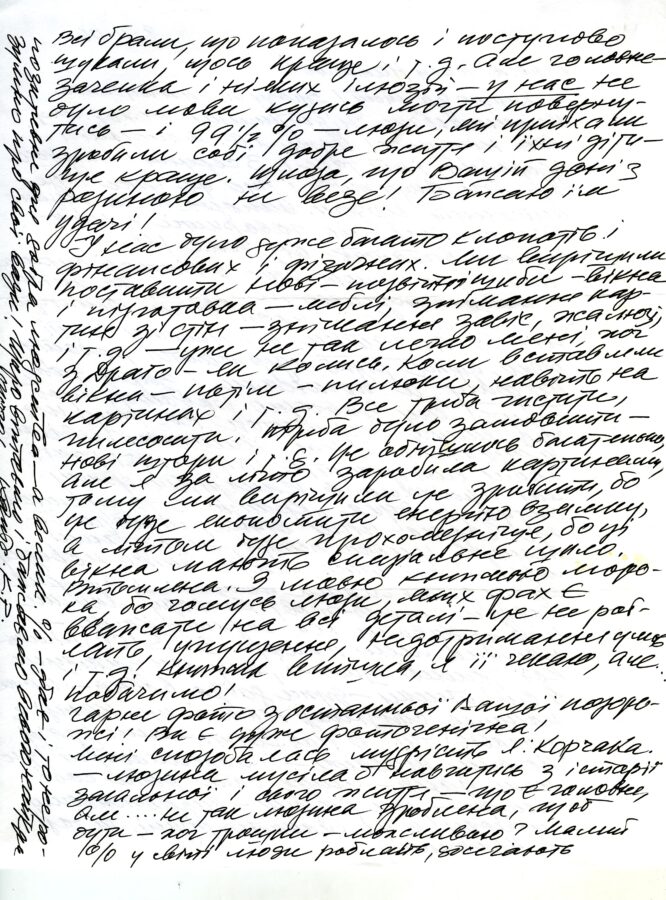 Всі брали, що попадалось і поступово
шукали, щось краще і т.д. Але головне
і ніяких ілюзій — у нас не
було мови кудись могти поверну-
тись — і 99½ % — люди, які приїхали
зробили собі добре життя і їхні діти —
ще краще. Шкода, що Вашій доні з
родиною не везе! Бажаю їм
удачі!
У нас було дуже багато клопотів і
фінансових і фізичних. Ми вирішили
поставити нові — подвійні шиби — вікна
і підготовка — меблі, знімання кар-
тин зі стін — знімання завіс, жалюзі,
і т.д. — уже не так легко мені, хоч
з — як колись. Коли вставляли
вікна — потім — пилюки, навіть на
картинах і т.д. Все треба чистити,
пилесосити. Треба було замовити —
нові штори і т.д. Це обійшлось багатенько,
але я за літо заробила картинами,
тому ми вирішили це зробити, бо
це буде економити енергію взимку,
а літом буде прохолодніше, бо ці
вікна мають спеціальне шкло
З моєю книжкою моро-
ка, бо чомусь люди, яких фах є
вважати на всі деталі — це не роб-
лять упущення, недотримання умов
і т.д. Книжка вийшла, я її чекаю, але
побачимо!
Гарні фото з останньої Вашої подоро-
жі! Ви є дуже фотогенічна!
Мені сподобалась мудрість Я. Корчака.
— людина мусіла б навчитись з історії
загальної і свого життя — що є головне,
але .... не так людина зроблена, щоб
бути — хоч трошки — можливою? Малий
% у світі люди роблять, досягають
позитивні для добра людства — а великий % — дбає і тому ро-
зумію про свої